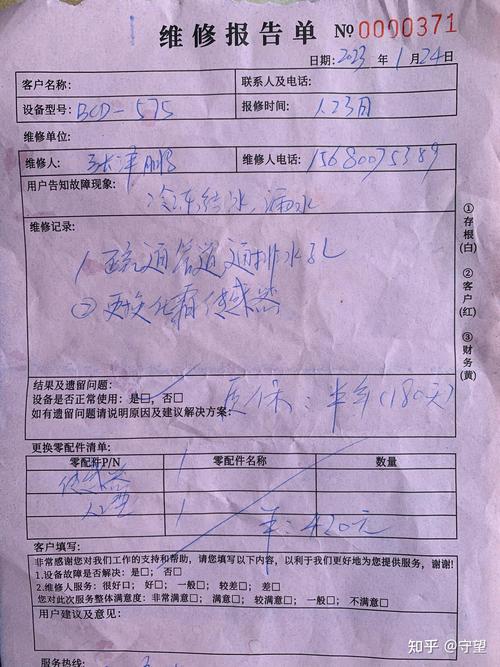 维修报告单 № 0000371
日期: 2023 年 1 月 24 日
客户名称: 联系人及电话:
设备型号: BCD-575 报修时间: 1月23日
维修单位:
维修人 张泽鹏 维修人电话: 15680075389
用户告知故障现象:
冷冻结冰、漏水
维修记录:
1 疏通管道通排水孔
② 更换化霜传感器
结果及遗留问题:
设备是否正常使用: 是□, 否□
如有遗留问题请说明原因及建议解决方案:
质保: 半年(180天)
更换零配件清单:
零配件P/N 零配件名称 数量
传感器 1
人工 1
420元
客户填写:
非常感谢您对我们工作的支持和帮助, 请您填写以下内容, 以利于我们更好地为您提供服务, 谢谢!
1.设备故障是否解决: 是□; 否□
2.维修人服务: 很好□; 好□; 一般□; 较差□; 差□
您对此次服务整体满意度: 非常满意□; 满意□; 较满意□; 一般□; 不满意□
用户建议及意见:
服务热线:
①存根(白)
②客户(红)
③财务(黄)
知乎 @守望